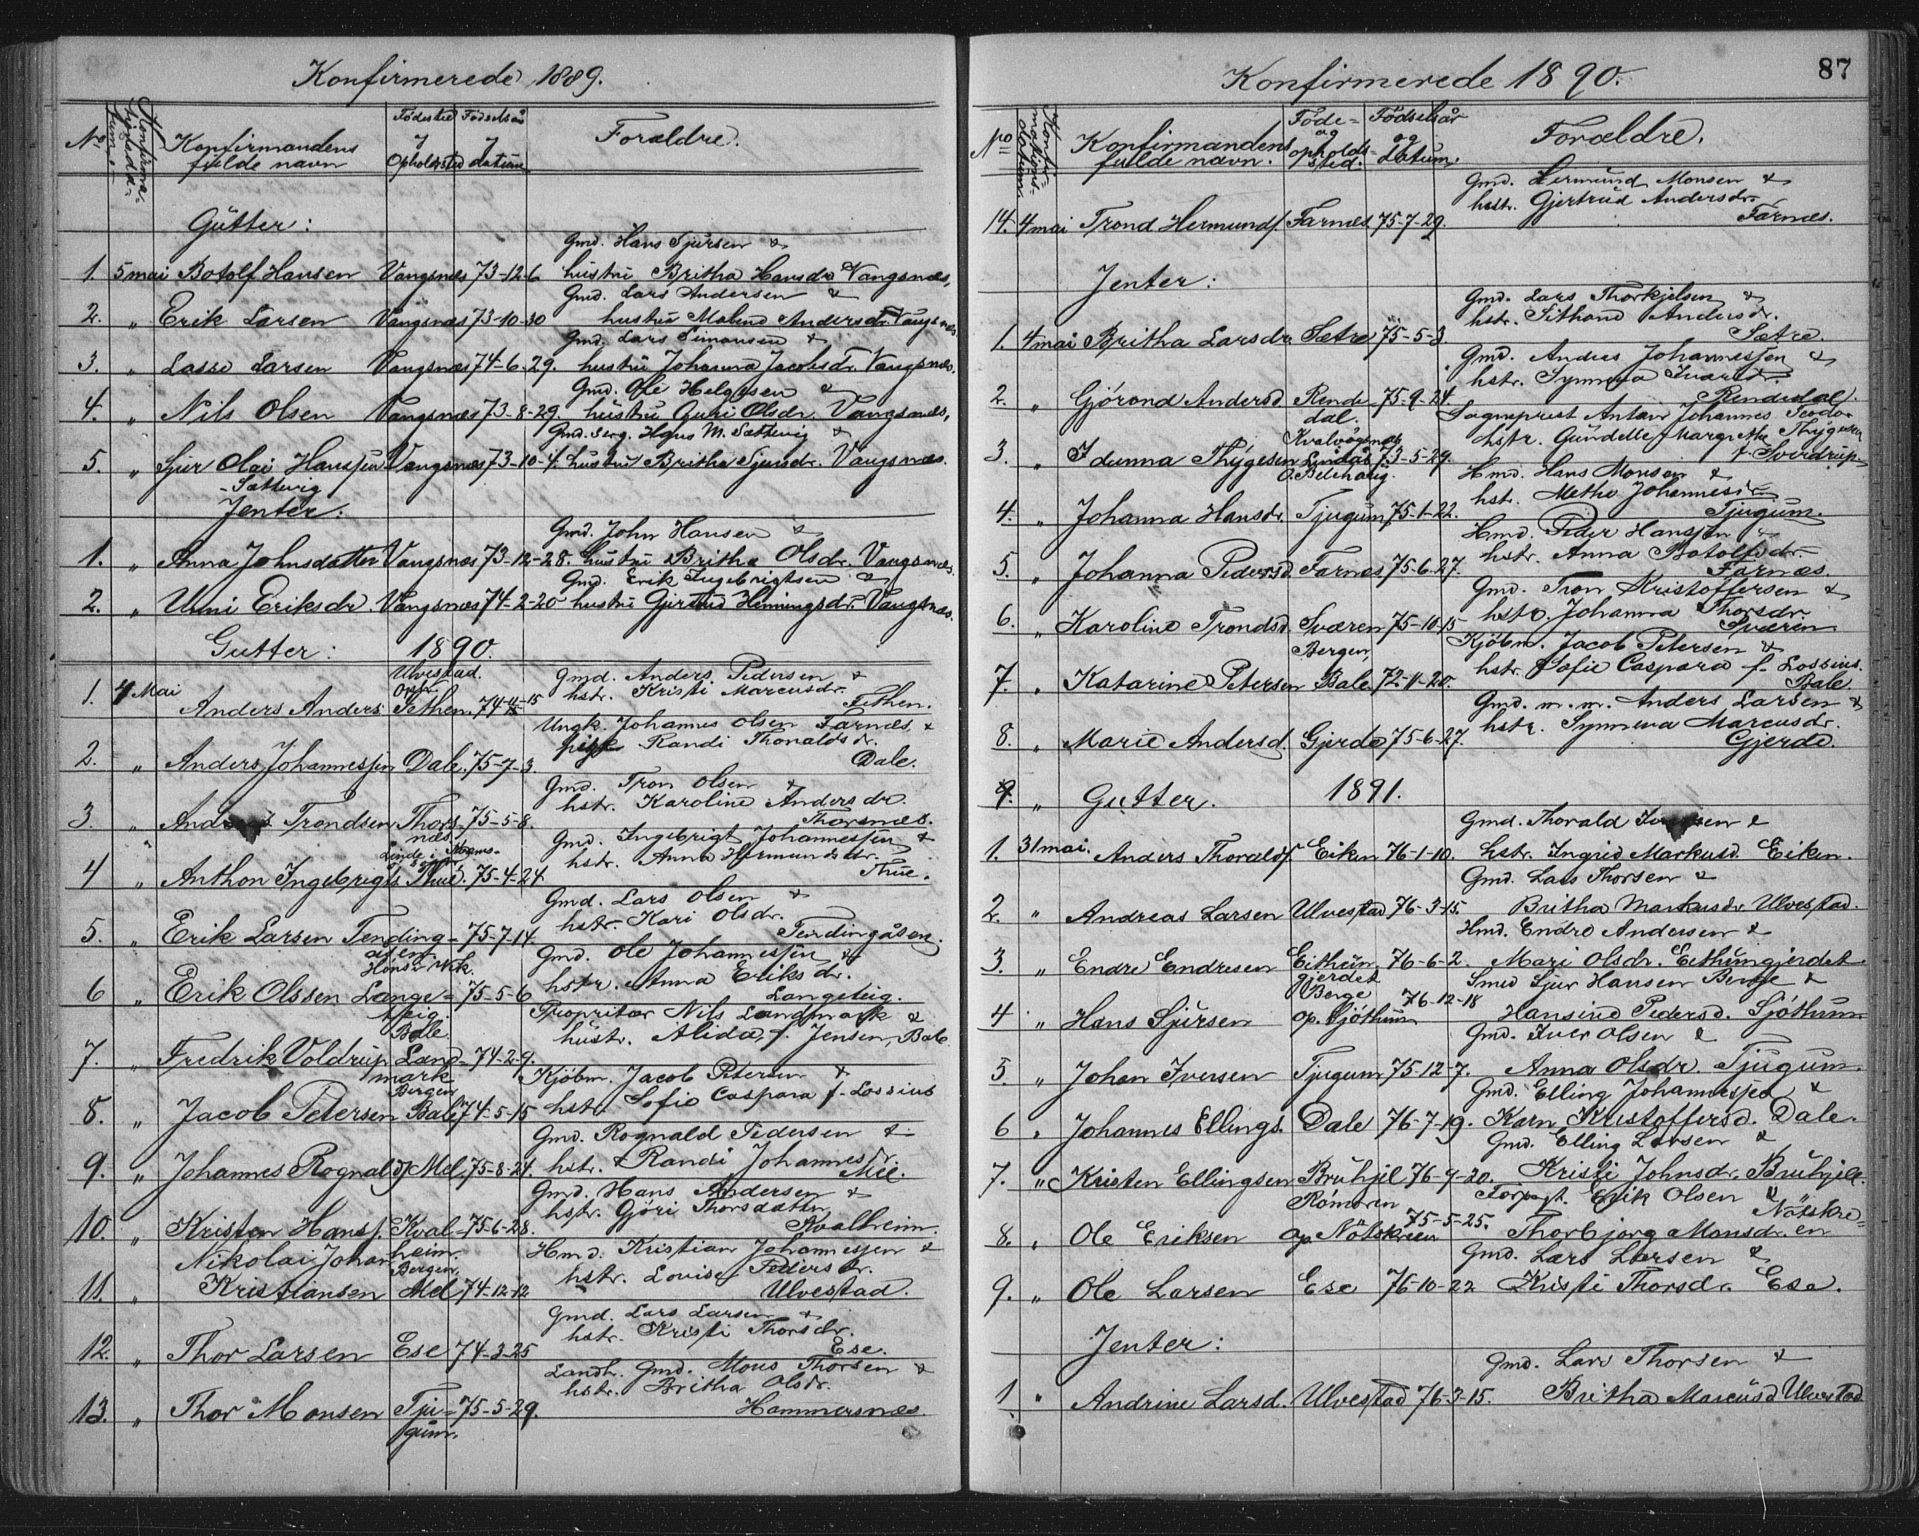 Konfirmerede 1889.
No Konfirmandens fulde navn Fødested og Opholdssted Fødselsår og datum Forældre.
Gutter:
Gmd. Hans Sjursen &
1. 5 mai Botolf Hansen Vangsnæs 73-12-6 hustru Britha Hansdr Vangsnæs,
Gmd. Lars Andersen &
2. " Erik Larsen Vangsnæs 73-10-30 hustru Malene Andersdr. Vangsnæs
Gmd. Lars Simonsen &
3. " Lasse Larsen Vangsnæs 74-6-29. hustru Johanna Jacobsdr. Vangsnæs.
Gmd. Ole Helgesen &
4. " Nils Olsen Vangsnæs 73-8-29. hustru Guri Olsdr. Vangsnæs,
Gmd. Serg. Hans M. Sættevig &
5. " Sjur Olai Hanssen Vangsnæs 73-10-4. hustru Britha Sjursdr. Vangsnæs.
- Sættevig
Jenter:
Gmd. John Hansen &
1. " Anna Johnsdatter Vangsnæs 73-12-28. hustru Britha Olsdr. Vangsnæs.
Gmd. Erik Ingebrigtsen &
2. " Unni Eriksdr. Vangsnæs 74-2-20 hustru Gjertrud Henningsdr. Vangsnæs.
Gutter: 1890.
Ulvestad. Gmd. Anders Pedersen &
1. 4 Mai Oph. hstr. Kristi Marcusdr.
Anders Anders. Fethen. 74-11-15 Fethen.
Ungk. Johannes Olsen Farnæs &
pige Randi Thoraldsdr.
2. " Anders Johannessen Dale. 75-7-3. Dale.
Gmd. Tron Olsen &
hstr. Karoline Andersdr.
3. " Trondsen Thors- 75-5-8. Thorsnæs.
næs Gmd. Ingebrigt Johannessen &
hstr. Anna Hermundsdr.
4 " Anthon Ingebrigts. Thue. 75-4-24. Thue.
Gmd. Lars Olsen &
hstr. Kari Olsdr.
5. " Erik Larsen Tending- 75-7-14. Tendingåsen.
åsen Gmd. Ole Johannessen &
hstr. Anna Eriksdr.
6 " Erik Olssen Lange- 75-5-6 Langeteig.
teig. Proprietær Nils Landmark &
Bale hustr. Alida, f. Jensen, Bale.
7. " Fredrik Voldrup Land- 74-2-9.
mark Kjøbm. Jacob Petersen &
Bergen hstr. Sofie Caspara f. Lossius
8. " Jacob Petersen Bale 74-5-15
Gmd. Rognald Pedersen &
9. " Johannes Rognalds. Mel. 75-8-24. hstr. Randi Johannesdr.
Mel.
Gmd. Hans Andersen &
hstr. Gjøri Thorsdatter
10. " Kristen Hanss. Kval- 75-6-28. Kvalheim.
Nikolai Johan heim. Hmd. Kristian Johannessen &
Bergen. hstr. Lovise Pedersdr.
11. " Kristiansen Mel 74-12-12 Ulvestad.
Gmd. Lars Larsen &
hstr. Kristi Thorsdr.
12. " Thor Larsen Ese 74-3-25 Ese.
Landh. Gmd. Mons Thorsen &
hstr. Britha Olsdr.
13. " Thor Monsen Tju- 75-5-29. Hammersnæs.
gum.
87
Konfirmerede 1890.
No Konfirmations datum Konfirmandens fulde navn. Føde- og opholds- sted. Fødselsår og datum. Forældre.
Gmd. Hermund Monsen &
hstr. Gjertrud Andersdr.
14. 4 mai Trond Hermunds. Farnæs. 75-7-29. Farnæs.
Jenter:
Gmd. Lars Thorkjelsen &
hstr. Andersdr.
1. 4 mai Britha Larsdr. Sætre 75-5-3. Sætre.
Gmd. Andres Johannessen &
hstr. Synneva Ivarsdr.
2. " Gjørond Andersd. Rende- 75-9-24. Rendedal.
dal. Sogneprest Anton Johannes Teodor
Kvalvågsnæs hstr. Gundelle Margrethe Thygesen
3. " Idunna Thygesen Lindås 73-5-29. f. Sverdrup.
Hmd. Hans Monsen &
hstr. Methe Johannesdr.
4. " Johanna Hansdr. Tjugum 75-1-22. Tjugum.
Hmd. Peder Hanssen &
hstr. Anna Botolfsdr.
5. " Johanna Pedersd. Farnæs 75-6-27. Farnæs.
Gmd. Tron Kristoffersen &
hstr. Johanna Thorsdr.
6. " Karoline Trondsd. Sværen 75-10-15 Sværen
Bergen, Kjøbm. Jacob Petersen &
hstr. Sofie Caspara f. Lossius.
7. " Katarine Petersen Bale 72-11-20. Bale
Gmd. m. m. Anders Larsen &
hstr. Synneva Marcusdr.
8. " Marie Andersd. Gjerde 75-6-27. Gjerde.
9. " Gutter. 1891.
Gmd. Thorald &
1. 31 mai. Anders Thoralds. Eiken 76-1-10. hstr. Ingrid Markusd. Eiken.
Gmd. Lars Thorsen &
2. " Andreas Larsen Ulvestad 76-3-15. Britha Markusdr. Ulvestad.
Hmd. Endre Andersen &
3. " Endre Endresen Eithun- 76-6-2. Mari Olsdr. Eithungjerdet.
gjerdet Smed Sjur Hansen Berge &
Berge 76-12-18
4 " Hans Sjursen op. Sjøthun Hansine Pedersd. Sjøthun
Gmd. Iver Olsen &
5. " Johan Iversen Tjugum 75-12-7. Anna Olsdr. Tjugum.
Gmd. Elling Johannessen &
6 " Johannes Ellings. Dale 76-7-19. Karn Kristoffersd. Dale.
Gmd. Elling Larsen &
7. " Kristen Ellingsen Bruhjel 76-9-20. Kristi Johnsdr. Bruhjell.
Rømøren Forpagt. Erik Olsen &
75-5-25. Nötskre-
8. " Ole Eriksen op. Nötskreen Thorbjørg Monsdr. en
Gmd. Lars Larsen &
9. " Ole Larsen Ese 76-10-22 Kristi Thorsdr. Ese.
Jenter:
Gmd. Lars Thorsen &
1 " Andrine Larsd. Ulvestad 76-3-15. Britha Marcusd Ulvestad